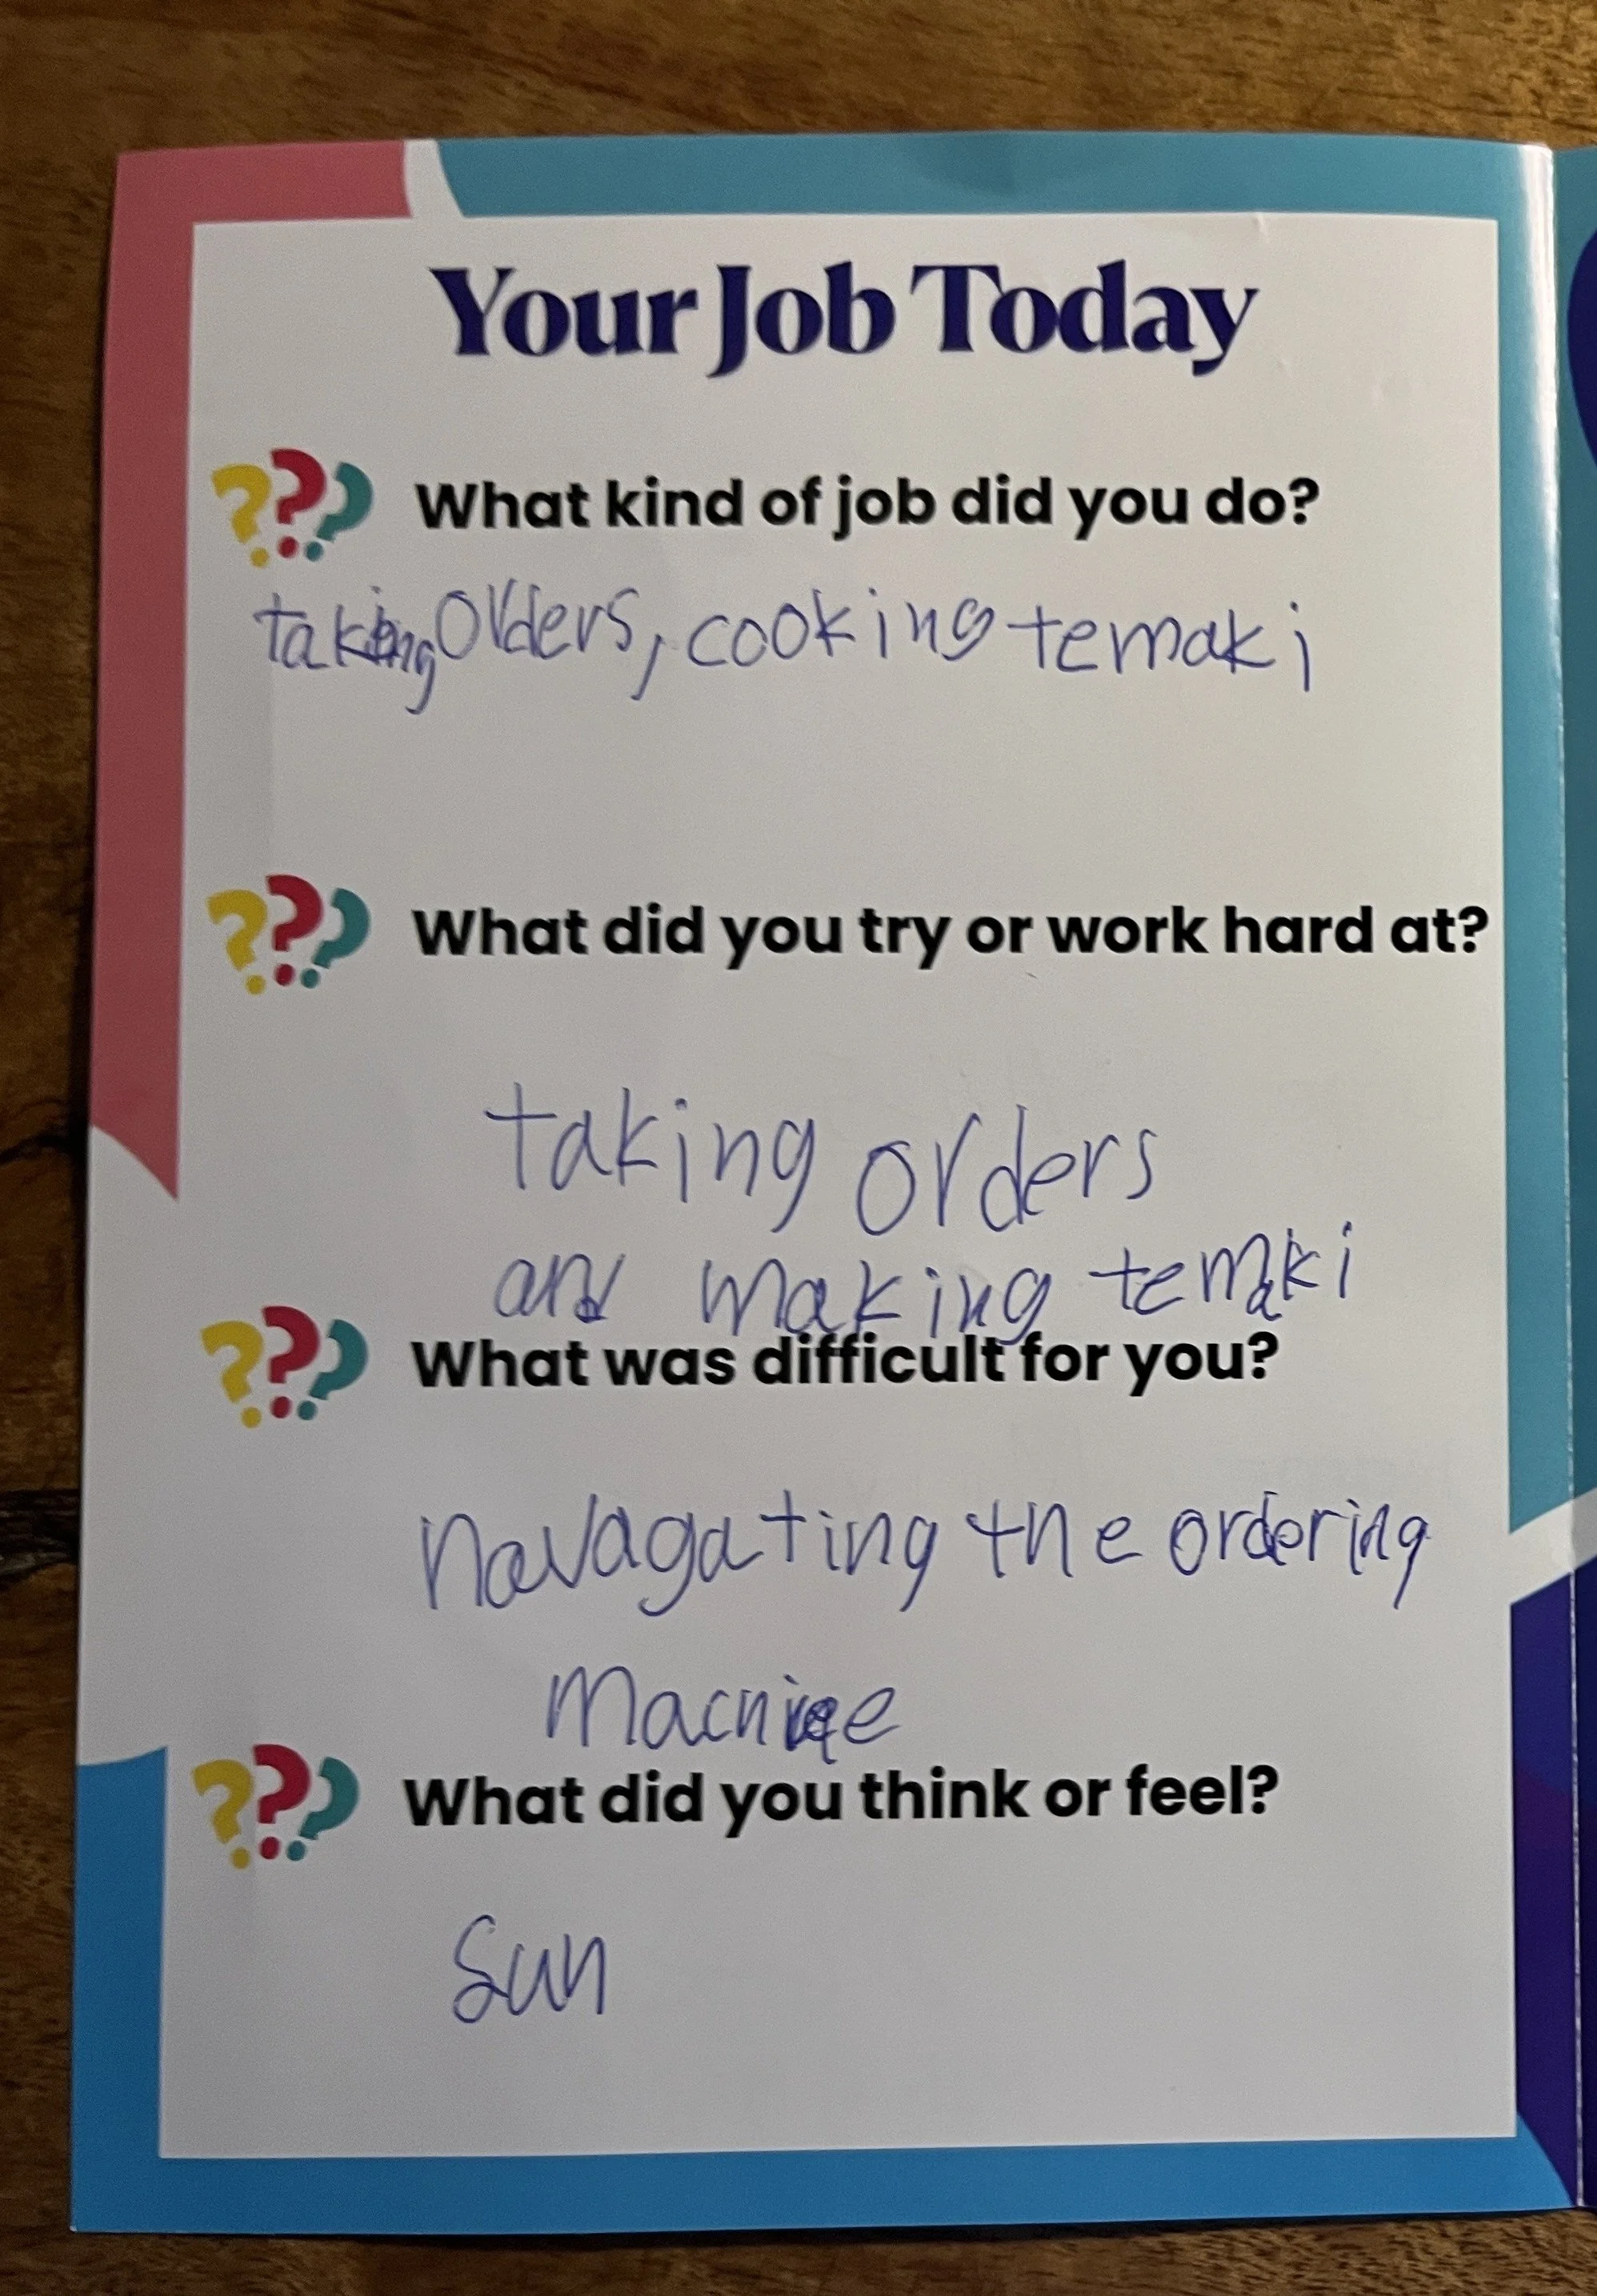 Your Job Today
??? What kind of job did you do?
taking orders, cooking temaki
??? What did you try or work hard at?
taking orders
and making temaki
??? What was difficult for you?
navagating the ordering
machine
??? What did you think or feel?